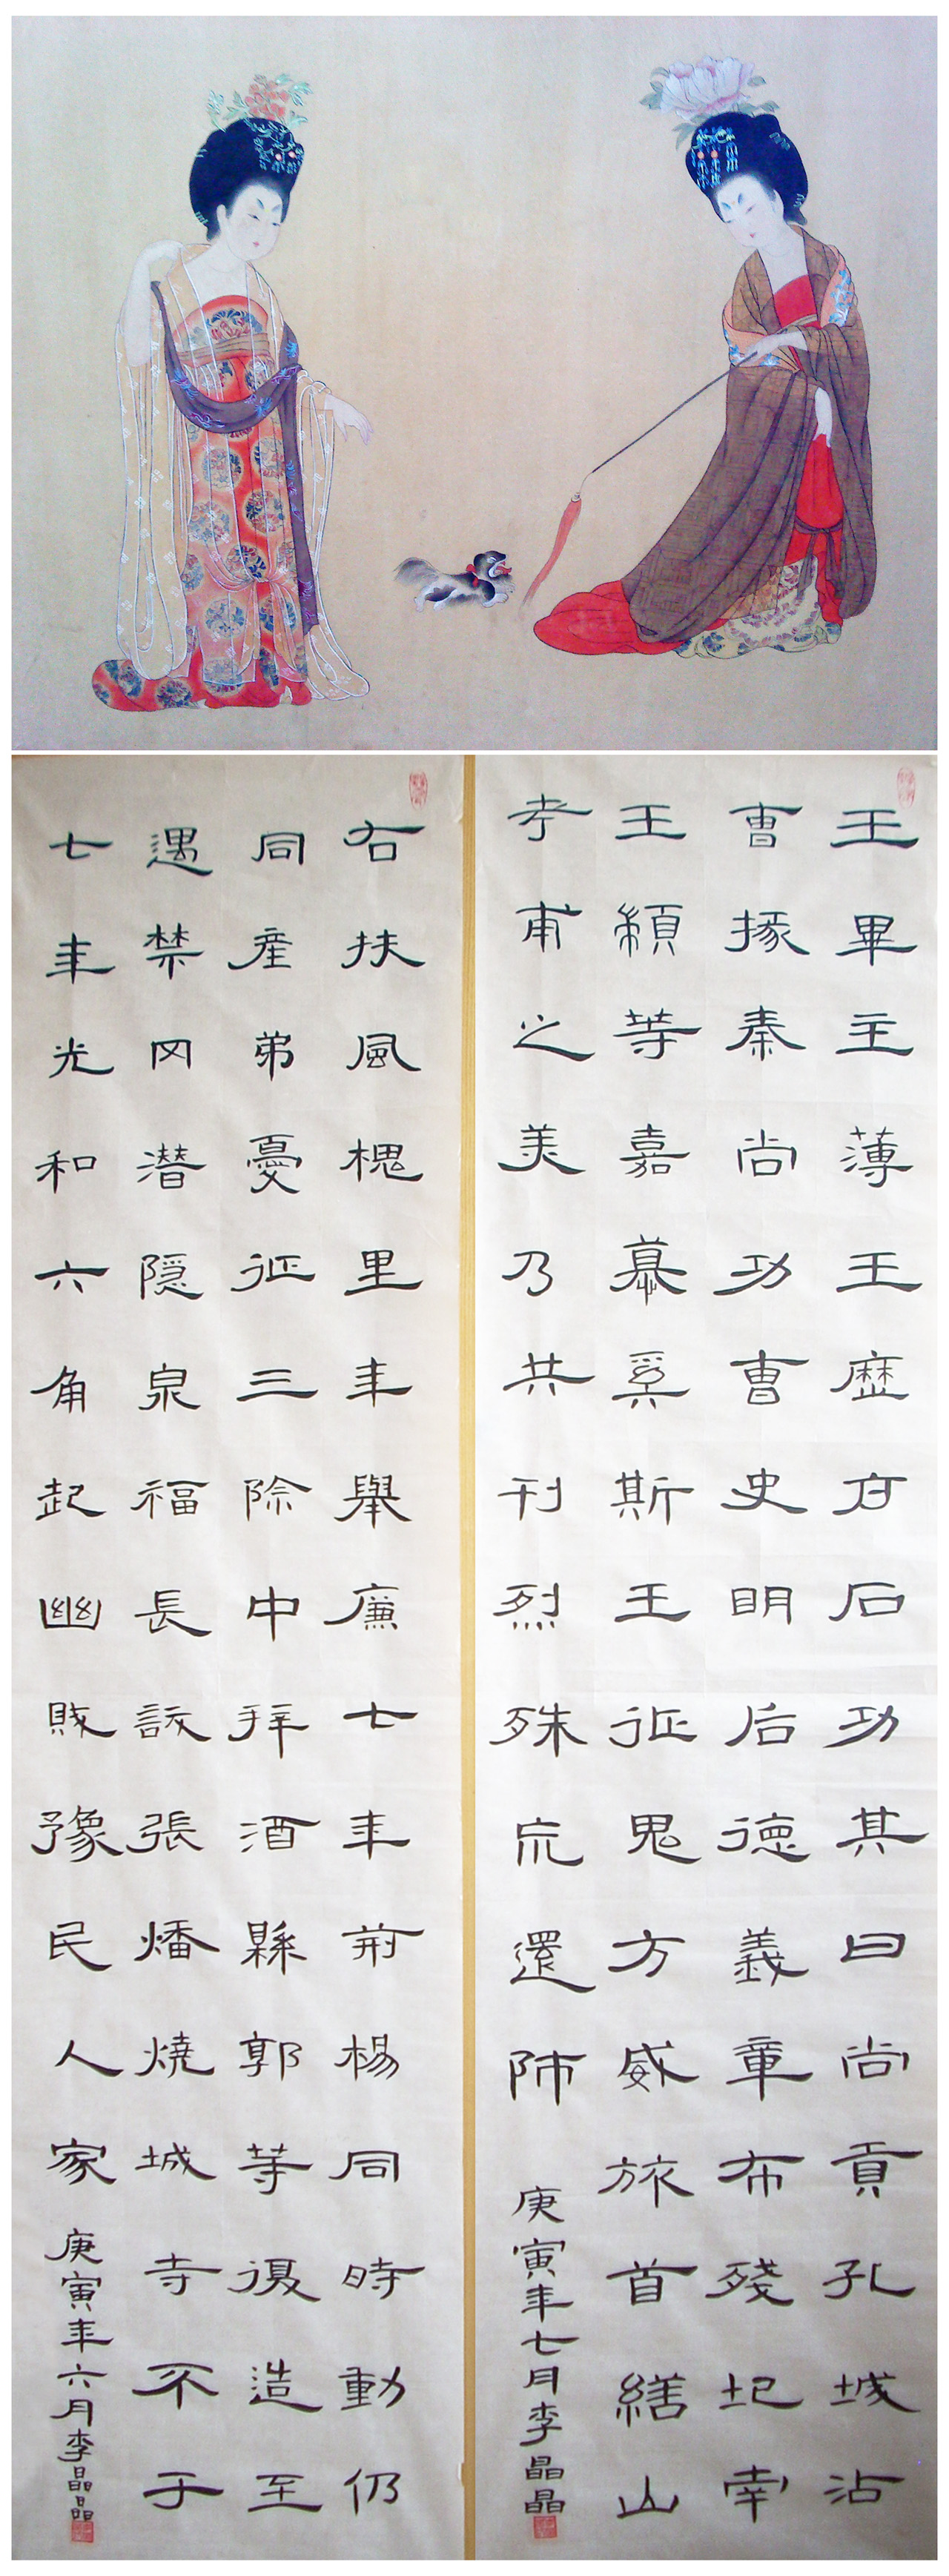 王畢主薄王歷戶石功其曰尚貢孔城沾
曹掾秦尚功曹史明后德義章布殘圮南
王顓等嘉慕奚斯王征鬼方威旅首繕山
考甫之美乃共刊烈殊荒還師
庚寅年七月李晶晶
右扶風槐里年舉廉七年荊楊同時動仍
同產弟憂征三除中拜酒縣郭等復造至
遇禁冈潛隱泉福長訞張燔燒城寺不于
七年光和六角起幽賊豫民人家
庚寅年六月李晶晶